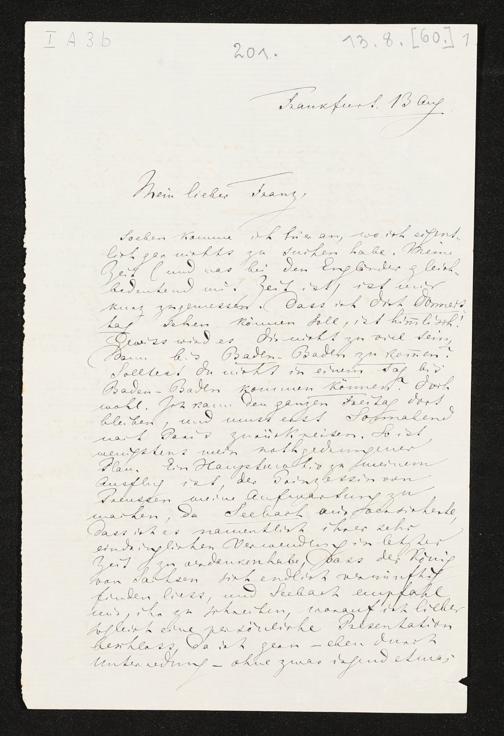 I A 3b
201.
13. 8. [60.] 1
Frankfurt. 13 Aug
Mein lieber Franz,
Soeben komme ich hier an, wo ich eigent-
lich gar nichts zu suchen habe. Meine
Zeit (und was bei den Engländer gleich
bedeutend mit Zeit ist) ist mir
kurz zugemessen. Dass ich Dich Donners
tag sehen können soll, ist himmlisch!
Gewiss wird es Dir nicht zu viel sein,
Dann bis Baden-Baden zu kommen?
Solltest Du nicht in einem Tag bis
Baden-Baden kommen können? Doch
wohl. Ich kann den ganzen Freitag dort
bleiben, und muss erst Sonnabend
nach Paris zurückreisen. So ist
wenigstens mein nothgedrungener
Plan. Ein Hauptmotiv zu meinem
Ausflug ist, der Prinzessin von
Preussen meine Aufwartung zu
machen, da Seebach mir versicherte,
dass ich es namentlich ihrer sehr
eindringlichen Verwendung in letzter
Zeit zu verdanken habe, dass der König
von Sachsen sich endlich vernünftig
finden liess, und Seebach empfahl
mir, ihr zu schreiben, worauf ich lieber
sogleich eine persönliche Präsentation
beschloss, da ich gern – eben durch
Unterredung – ohne zwar irgend etwas